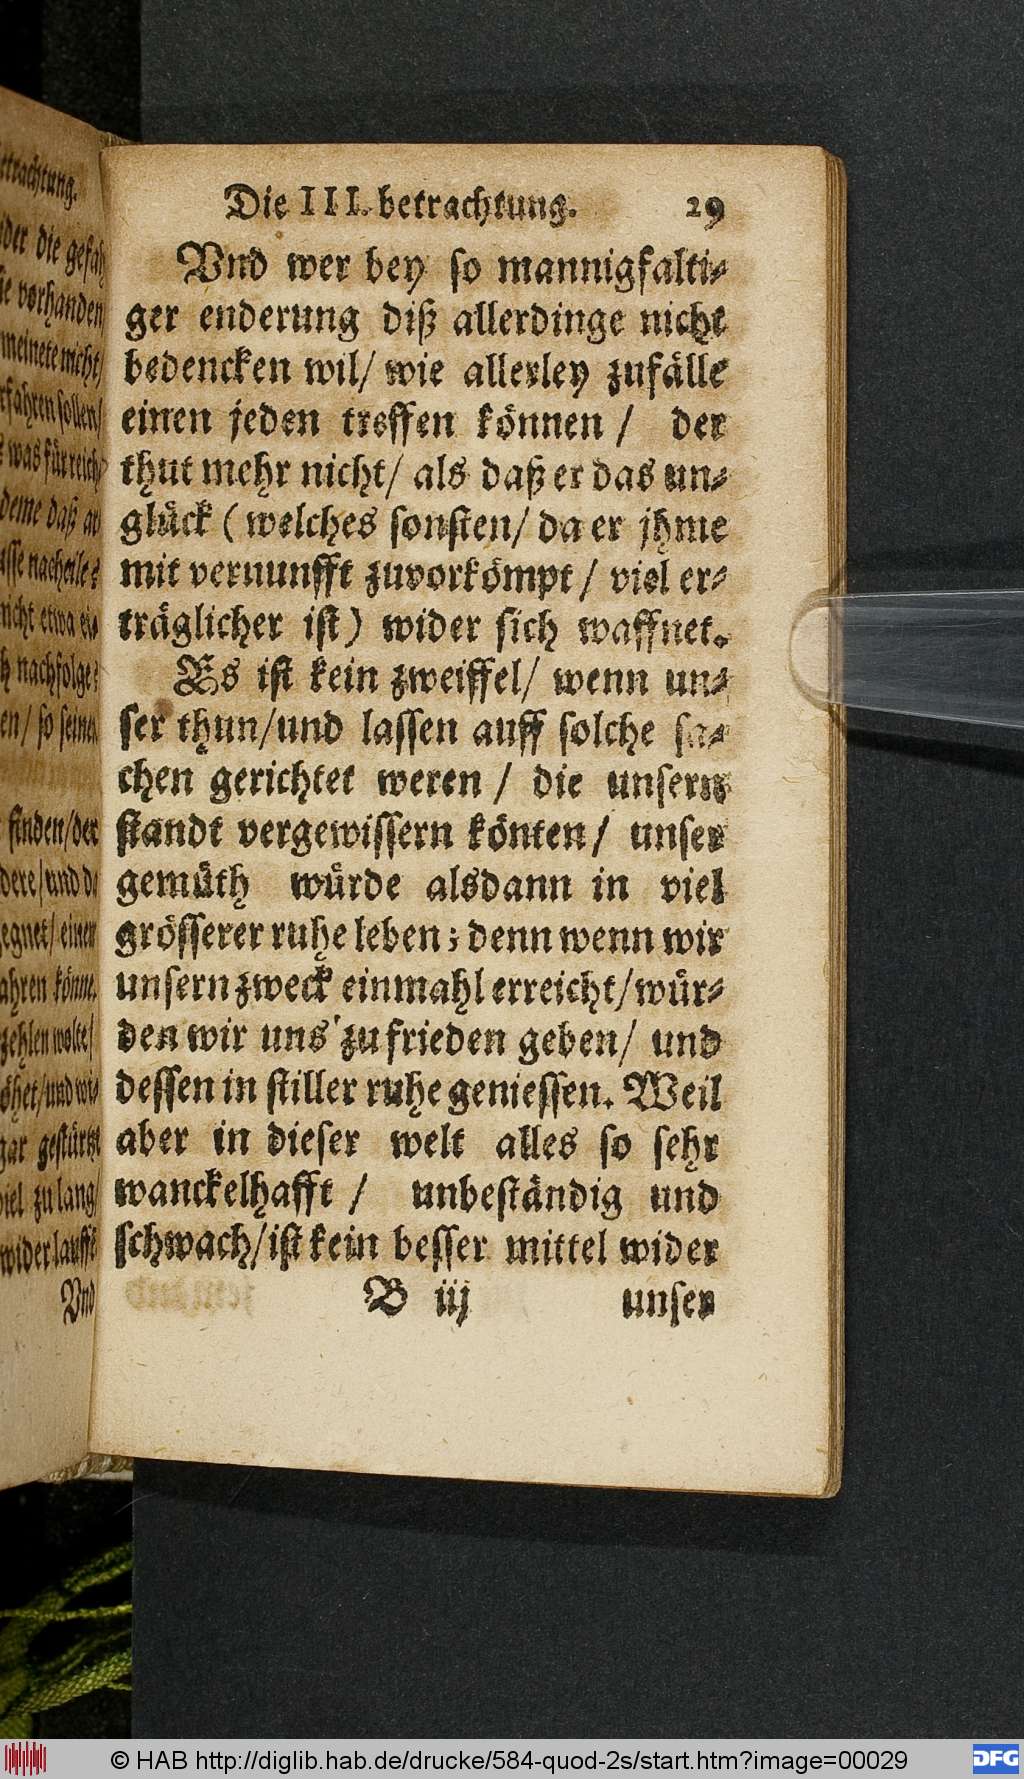 Die III. betrachtung. 29
Vnd wer bey so mannigfalti-
ger enderung diß allerdinge nicht
bedencken wil/ wie allerley zufälle
einen jeden treffen können / der
thut mehr nicht/ als daß er das un-
glück ( welches sonsten/ da er jhme
mit vernunfft zuvorkömpt / viel er-
träglicher ist) wider sich waffnet.
Es ist kein zweiffel/ wenn un-
ser thun/und lassen auff solche sa-
chen gerichtet weren / die unsern
standt vergewissern könten/ unser
gemüth würde alsdann in viel
grösserer ruhe leben; denn wenn wir
unsern zweck einmahl erreicht/ wür-
den wir uns zu frieden geben/ und
dessen in stiller ruhe geniessen. Weil
aber in dieser welt alles so sehr
wanckelhafft / unbeständig und
schwach/ ist kein besser mittel wider
B iij unser
etrachtung.
die gefah
vorhanden
meinete nicht/
erfahren sollen/
was für reich
deme daß
nacheile
nicht etwa ei-
nachfolge
en/ so seine
finden/der
dere/und
egnet/ einer
ahren könne.
zehlen wolte/
öhet/und wi-
gar gestürtzt
viel zu lang/
wider lauffe
Vnd
© HAB http://diglib.hab.de/drucke/584-quod-2s/start.htm?image=00029
DFG